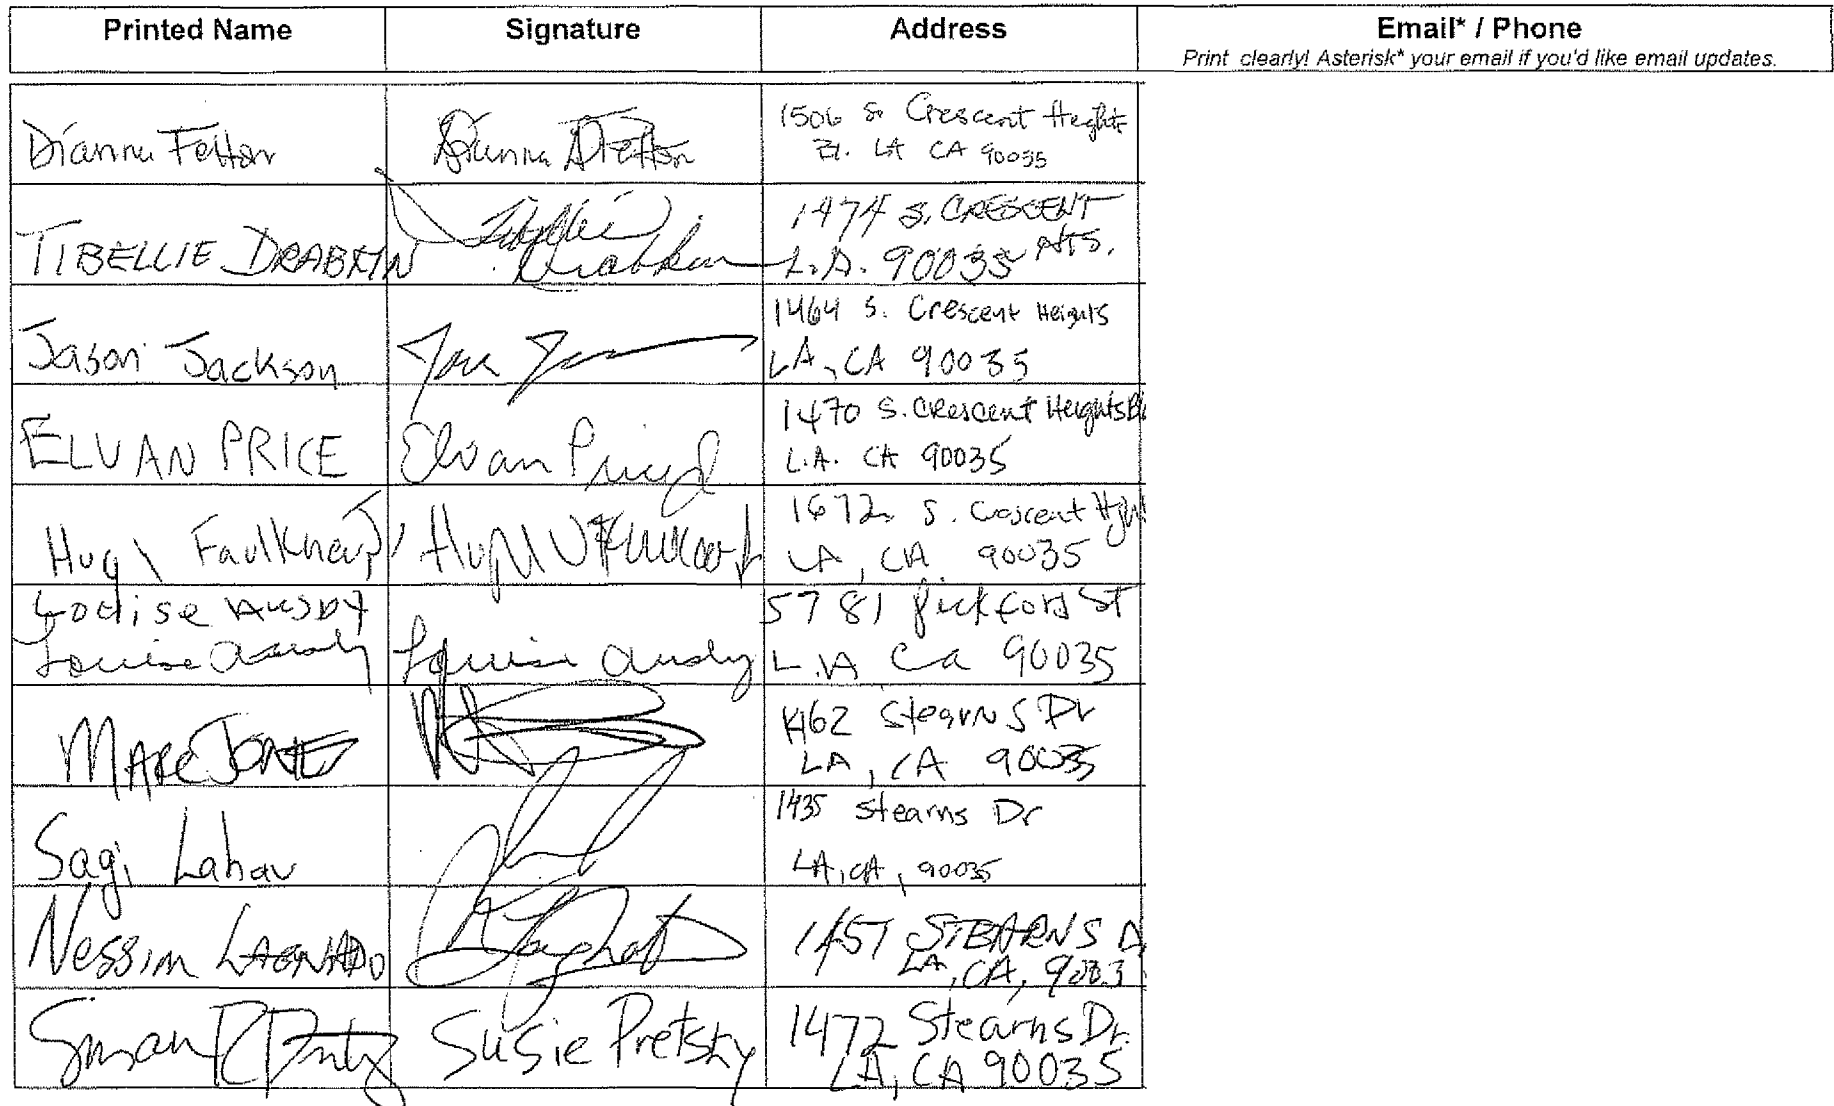 Printed Name Signature Address Email* / Phone
Print clearly! Asterisk* your email if you'd like email updates.
Dianna Felton
1506 S. Crescent Heights
Bl. LA CA 90035
TIBELLIE DRABKIN Tibellie Drabkin
1474 S. CRESCENT
HTS.
L.A. 90035
Jason Jackson
1464 S. Crescent Heights
LA, CA 90035
ELVAN PRICE Elvan Price
1470 S. Crescent Heights
L.A. CA 90035
Hugh Faulkner
1672 S. Crescent
LA, CA 90035
Louise Ausby
Louise Ausby Louise Ausby
5781 Pickford St
L.A Ca 90035
MARC JONES
1462 Stearns Dr
LA, CA 90035
Sagi Lahav
1435 Stearns Dr
LA, CA, 90035
Nessim LAGNADO
1457 STEARNS D
LA, CA, 9003
Susan Susie Pretsky
1472 Stearns Dr.
LA, CA 90035